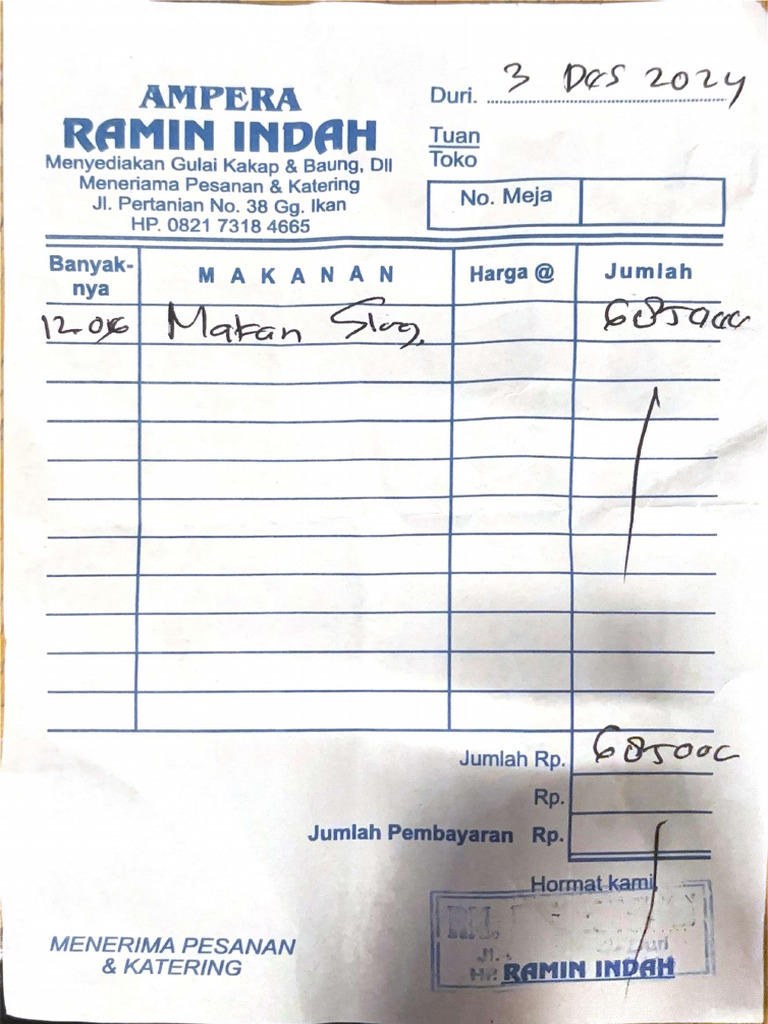 AMPERA
RAMIN INDAH
Menyediakan Gulai Kakap & Baung, Dll
Meneriama Pesanan & Katering
Jl. Pertanian No. 38 Gg. Ikan
HP. 0821 7318 4665
Duri. 3 Des 2024
Tuan
Toko
No. Meja
Banyak-nya MAKANAN Harga @ Jumlah
Makan 685000
Jumlah Rp. 685000
Rp.
Jumlah Pembayaran Rp.
Hormat kami,
RM.
Jl. Duri
HP. RAMIN INDAH
MENERIMA PESANAN
& KATERING